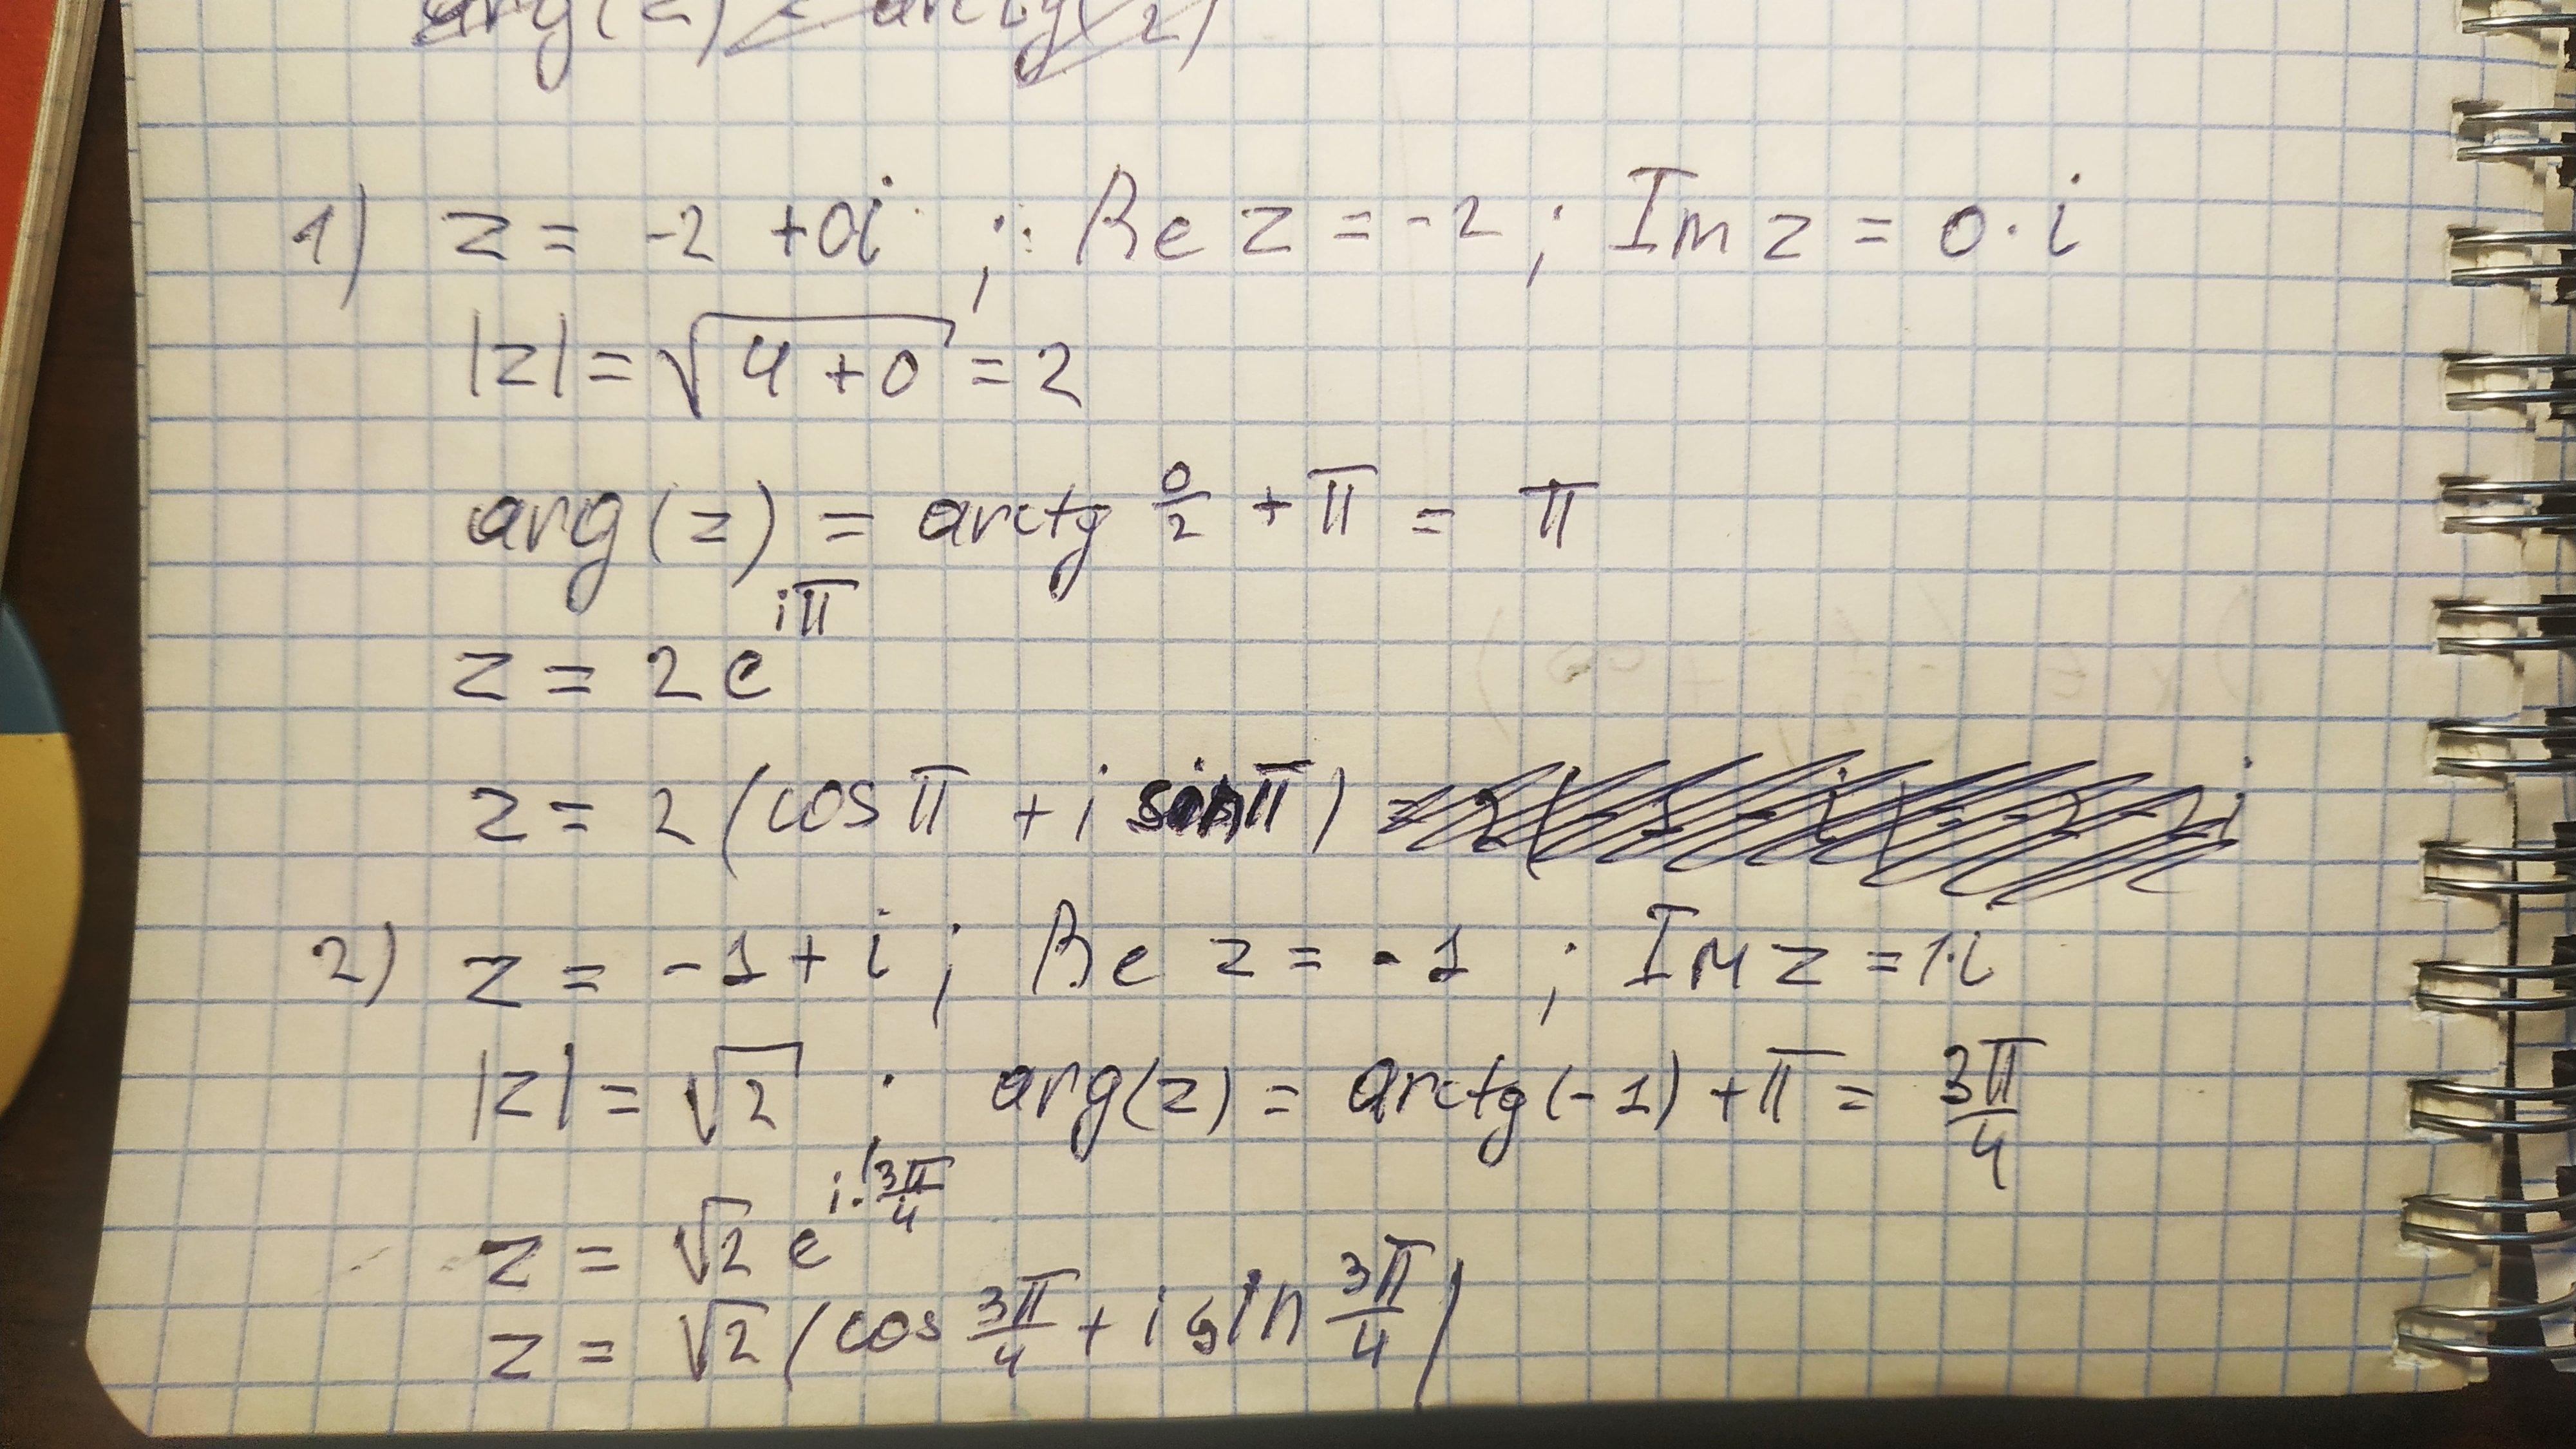 arg(z) = arctg(
1) z = -2 +0i ; Re z = -2 ; Im z = 0·i
|z| = √(4+0) = 2
arg(z) = arctg 0/2 + π = π
z = 2e^(iπ)
z = 2(cos π + i sin π)
2) z = -1 + i ; Re z = -1 ; Im z = 1·i
|z| = √2 ; arg(z) = arctg(-1) + π = 3π/4
z = √2 e^(i·3π/4)
z = √2 (cos 3π/4 + i sin 3π/4)